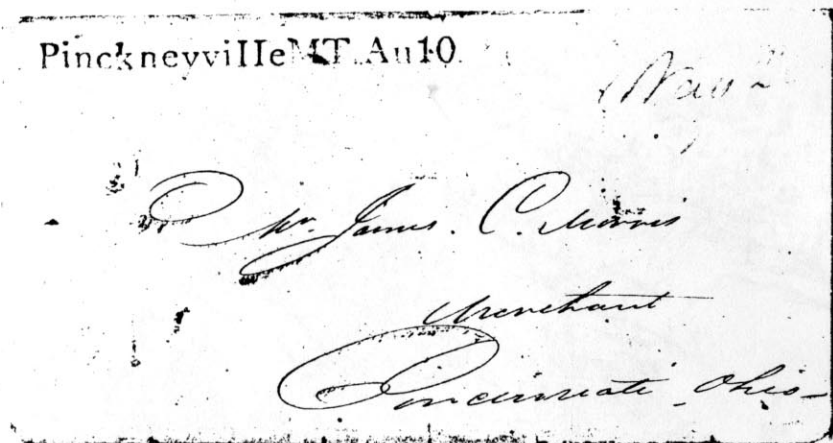 PinckneyvilleMT.Au10
Mr. James. C. Morris
Merchant
Cincinnati Ohio